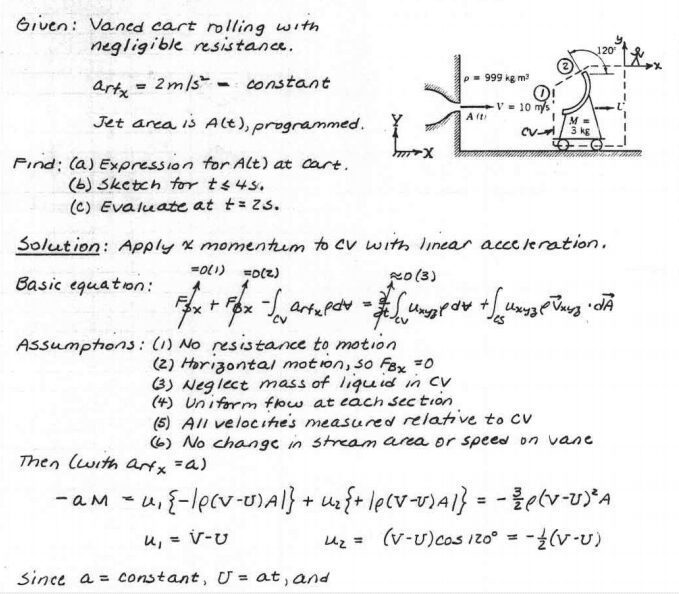 Given: Vaned cart rolling with
negligible resistance.
arfx = 2 m/s² = constant
Jet area is A(t), programmed.
Find: (a) Expression for A(t) at cart.
(b) Sketch for t ≤ 4s.
(c) Evaluate at t = 2s.
ρ = 999 kg m³
V = 10 m/s
A (t)
Y
X
y
x
120°
②
①
U
CV
M =
3 kg
Solution: Apply x momentum to CV with linear acceleration.
=0(1) =0(2) ≈0(3)
Basic equation: Fsx + FBx - ∫cv arfx ρdV = ∂/∂t ∫cv uxyz ρdV + ∫cs uxyz ρV⃗xyz · dA⃗
Assumptions: (1) No resistance to motion
(2) Horizontal motion, so FBx = 0
(3) Neglect mass of liquid in CV
(4) Uniform flow at each section
(5) All velocities measured relative to CV
(6) No change in stream area or speed on vane
Then (with arfx = a)
-aM = u₁{-|ρ(V-U)A|} + u₂{+|ρ(V-U)A|} = -3/2 ρ(V-U)²A
u₁ = V-U u₂ = (V-U)cos 120° = -½(V-U)
Since a = constant, U = at, and